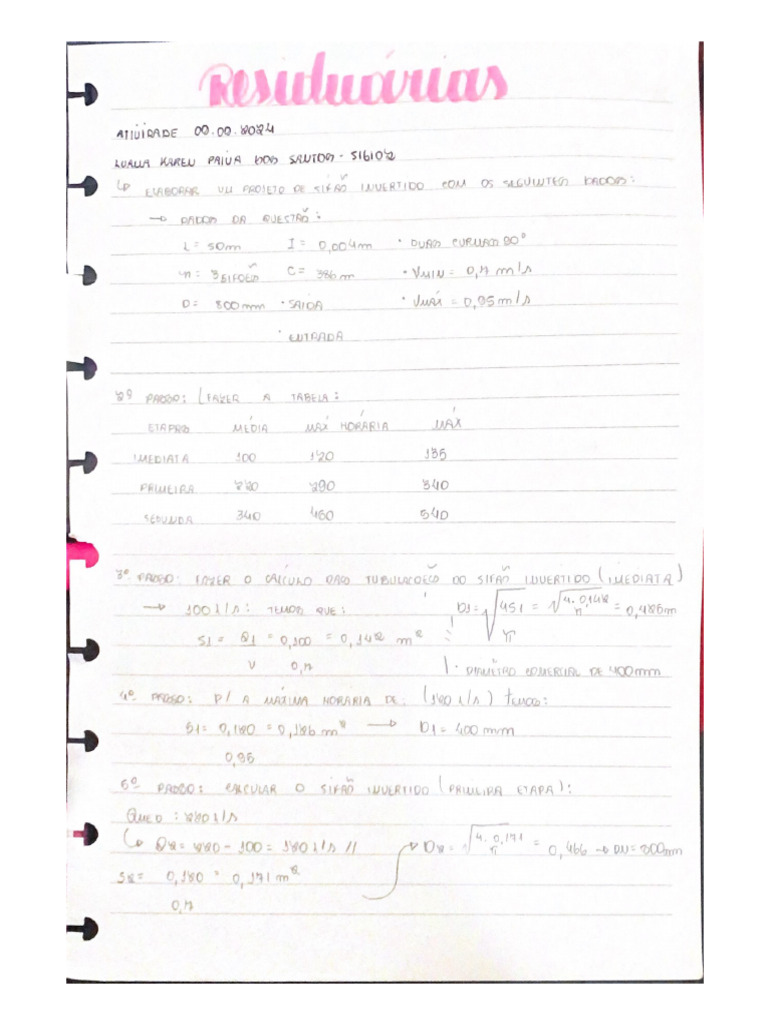 Residuárias
ATIVIDADE 00.00.2024
LUALLA KAREN PAIVA DOS SANTOS - 516102
↳ ELABORAR UM PROJETO DE SIFÃO INVERTIDO COM OS SEGUINTES DADOS:
→ DADOS DA QUESTÃO:
L = 50m I = 0,004m • DUAS CURVAS 90°
n = 3 SIFÕES C = 386m • VMIN = 0,7 m/s
D = 800mm • SAÍDA • VMÁX = 0,95 m/s
• ENTRADA
2º PASSO: (FAZER A TABELA:
ETAPAS MÉDIA MÁX HORÁRIA MÁX
IMEDIATA 100 120 135
PRIMEIRA 220 290 340
SEGUNDA 340 460 540
3º PASSO: FAZER O CÁLCULO DAS TUBULAÇÕES DO SIFÃO INVERTIDO (IMEDIATA)
→ 100 l/s: TEMOS QUE: D1 = √4S1/π = √4.0,142/π = 0,425m
S1 = Q1/V = 0,100/0,7 = 0,142 m²
• DIÂMETRO COMERCIAL DE 400mm
4º PASSO: P/ A MÁXIMA HORÁRIA DE: (120 l/s) TEMOS:
S1 = 0,120/0,95 = 0,126 m² → D1 = 400 mm
5º PASSO: CALCULAR O SIFÃO INVERTIDO (PRIMEIRA ETAPA):
220 l/s
↳ Q2 = 220 - 100 = 120 l/s // → D2 = √4.0,171/π = 0,466 → DN = 500mm
S2 = 0,120/0,7 = 0,171 m²